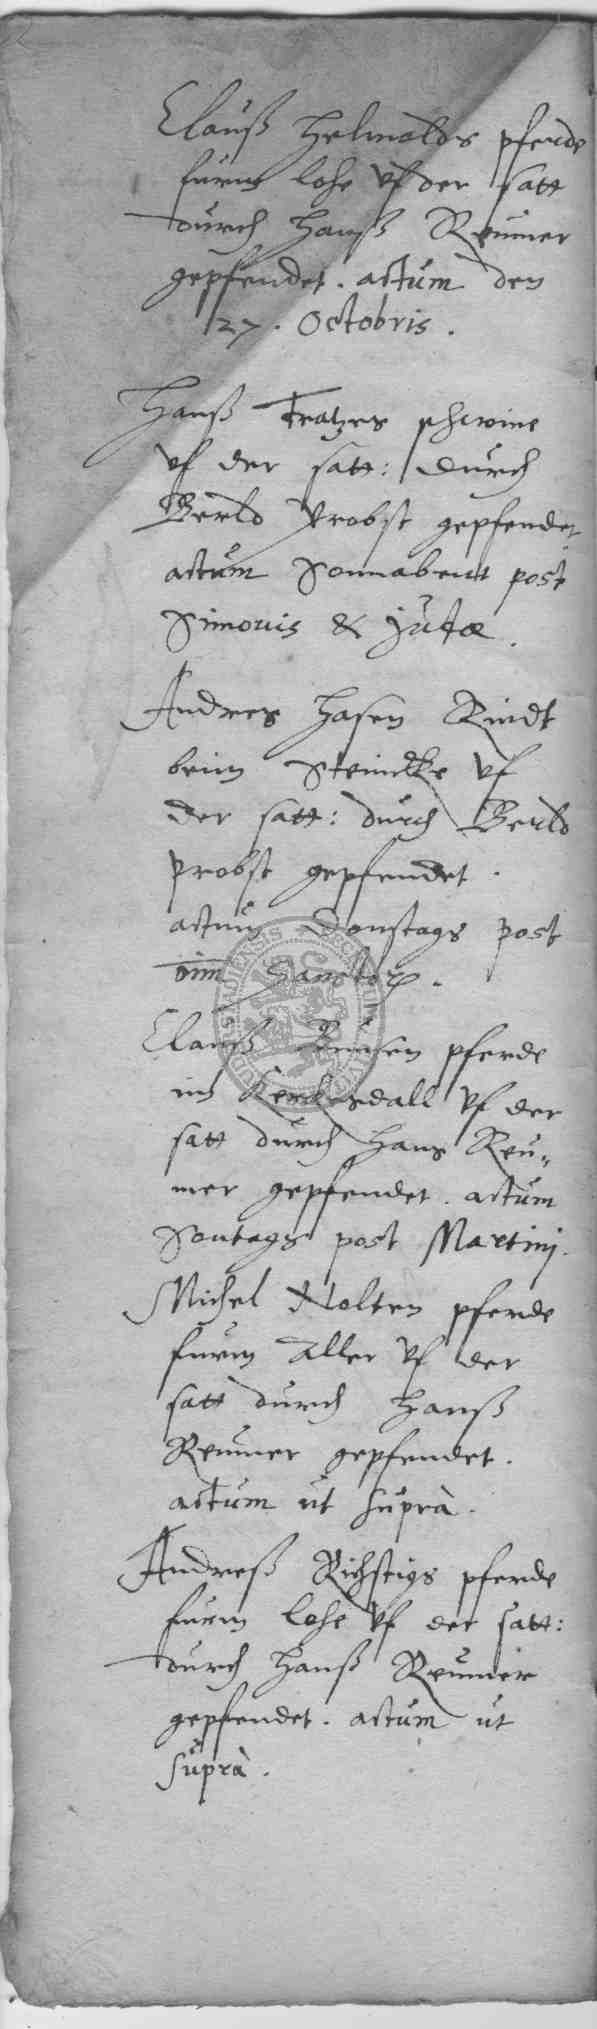 Clauß Helmolds pferde
furm lohe vf der satt
durch Hanß Reumer
gepfendet. actum den
27. Octobris.
Hanß Tratzes schwine
vf der satt: durch
Berld Probst gepfendet
actum Sonnabent post
Simonis & Judæ.
Andres Hasen Rindt
beim Steindke vf
der satt: durch Berld
Probst gepfendet.
actum Donstags post
Oim Sanctor.
Clauß pferde
im vf der
satt durch Hans Reu-
mer gepfendet. actum
Sontags post Martini.
Michel Nolten pferde
furm Aller vf der
satt durch Hanß
Reumer gepfendet.
actum ut suprà.
Andreß Richstigs pferde
furm lohe vf der satt:
durch Hanß Reumer
gepfendet. actum ut
suprà.